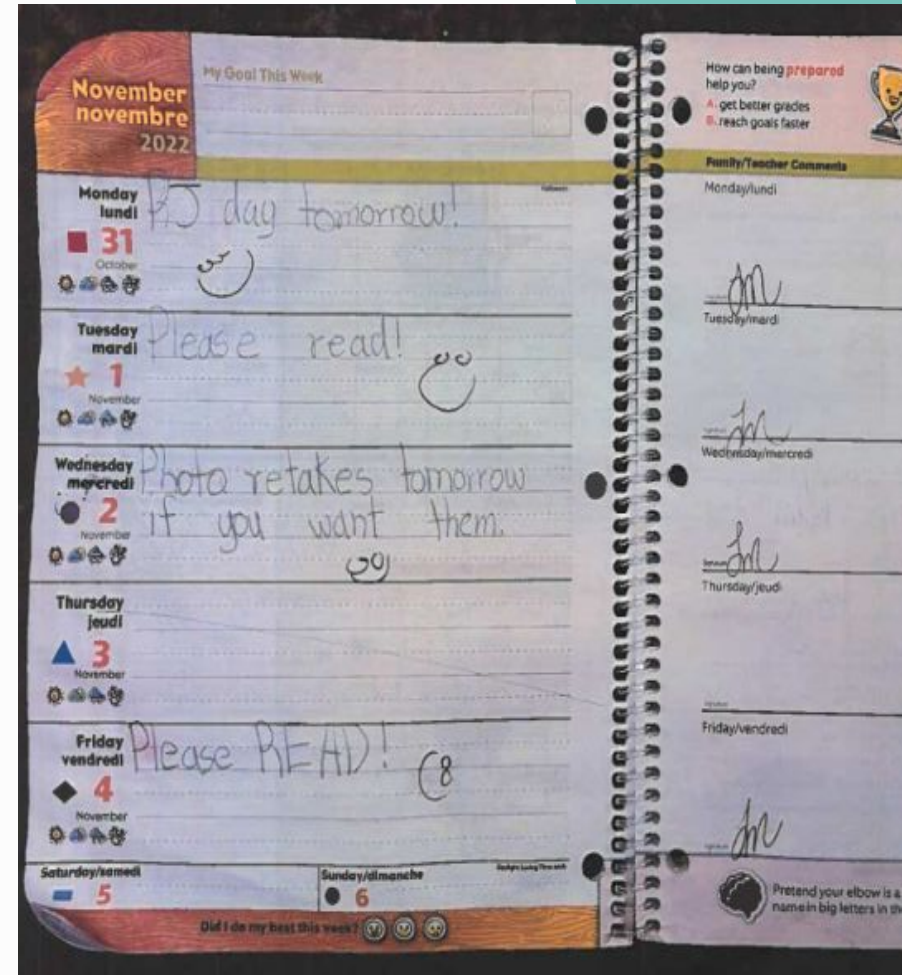 November
novembre
2022
My Goal This Week
Monday
lundi
31
October
PJ day tomorrow!
Tuesday
mardi
1
November
Please read!
Wednesday
mercredi
2
November
Photo retakes tomorrow
if you want them.
Thursday
jeudi
3
November
Friday
vendredi
4
November
Please READ!
Saturday/samedi
5
Sunday/dimanche
6
Did I do my best this week?
How can being prepared
help you?
A. get better grades
B. reach goals faster
Family/Teacher Comments
Monday/lundi
Tuesday/mardi
Wednesday/mercredi
Thursday/jeudi
Friday/vendredi
Pretend your elbow is a
name in big letters in the